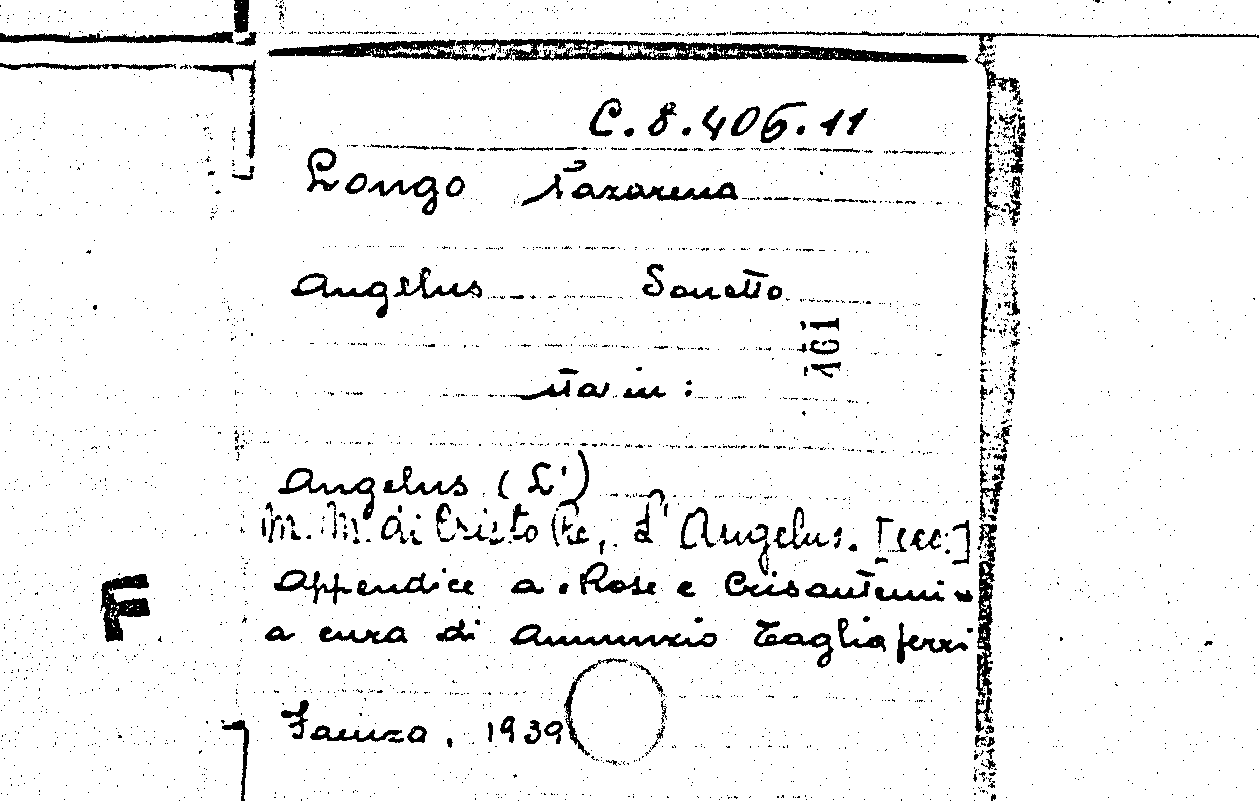 C.8.406.11
Longo Nazarena
Angelus Sonetto
161
sta in :
Angelus (L')
M. M. di Cristo Re, L'Angelus. [ecc.]
Appendice a "Rose e Crisantemi"
a cura di Annunzio Tagliaferri
F
Faenza, 1939